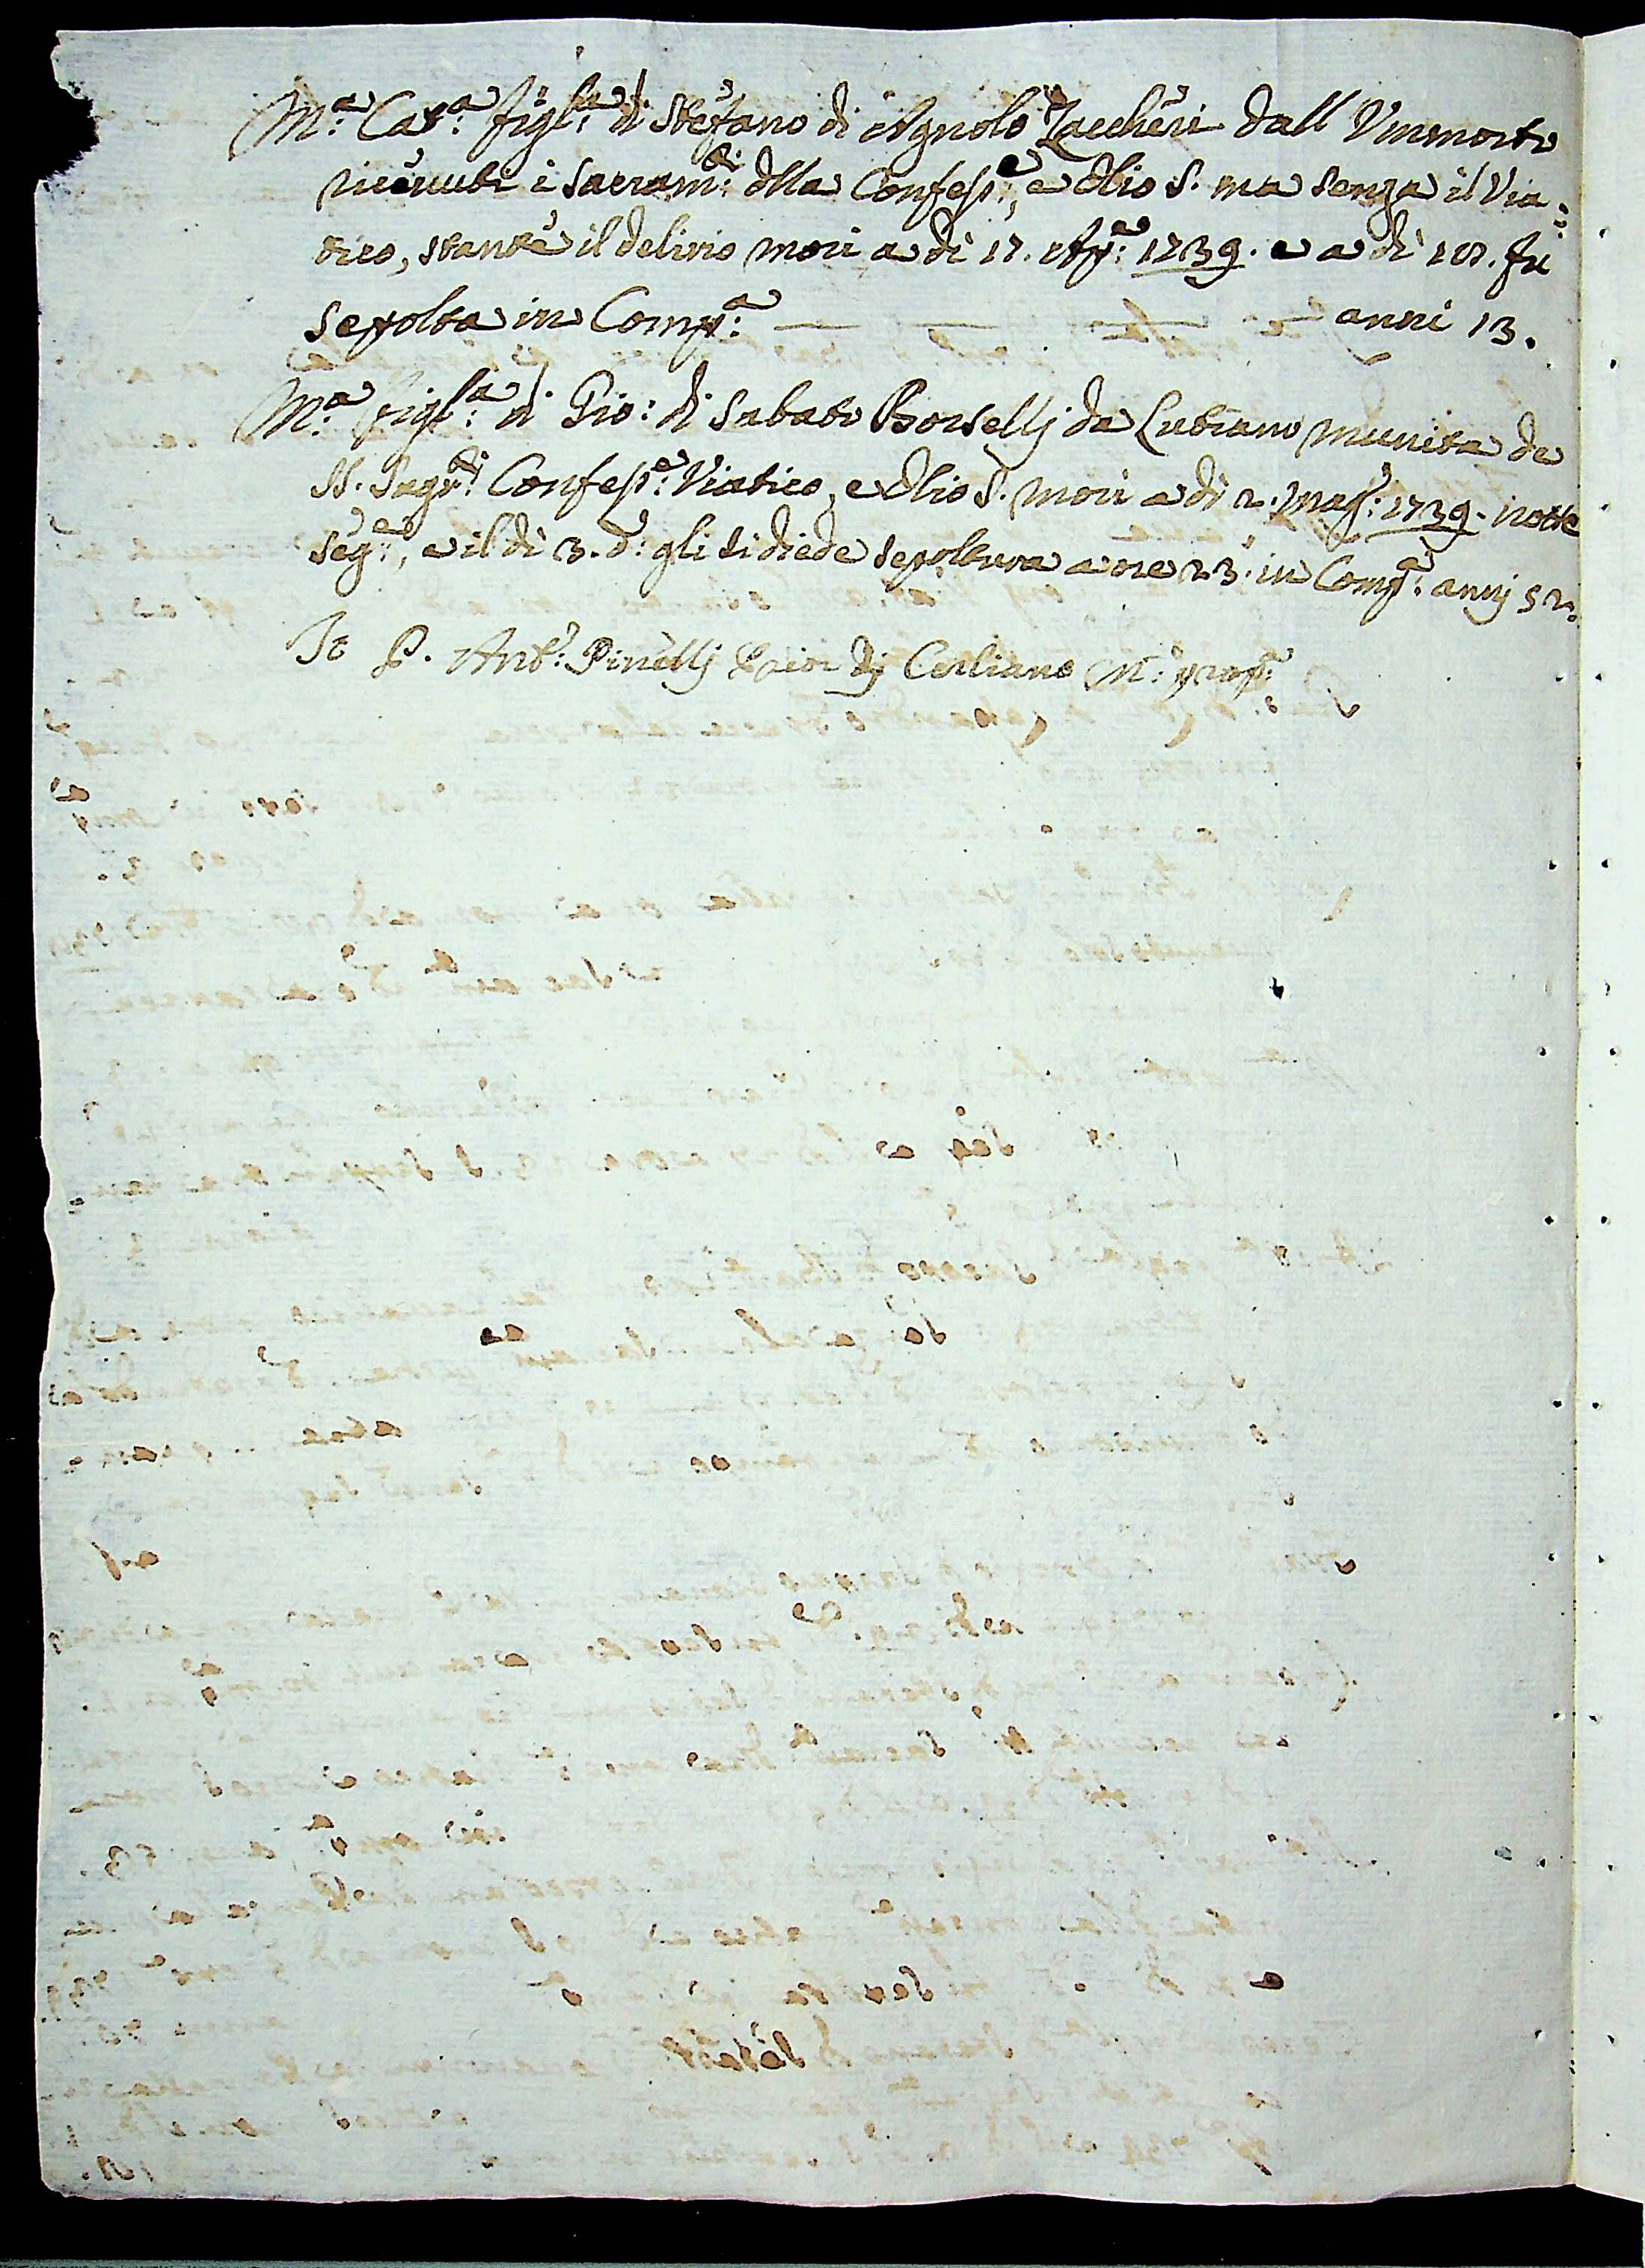 M:ª Cat:ª figl:ª di Stefano di Agnolo Zaccheri dall Vmmorto
riceuuti i Sacram:ti dlla Confess:e, e Olio S. ma senza il Via=
tico, stante il delirio morì a dì 17. Ap:e 1739. e a dì 18. fu
sepolta in Comp:ª — — — — anni 13.
M:ª figl:ª di Gio: di Sabato Borselli da Lutiano munita de
SS. Sagr:ti Confess:e Viatico, e Olio S. morì a dì 2. Mag:o 1739. notte
seg:e, e il dì 3. d:o gli si diede sepoltura a ore 23. in Comp:ª anni 52.
Io P. Ant:o Pinelli Prior di Cerliano M:o prop:ª